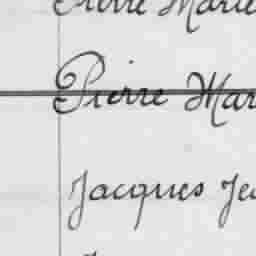 Pierre Marie
Pierre Mar
Jacques Je